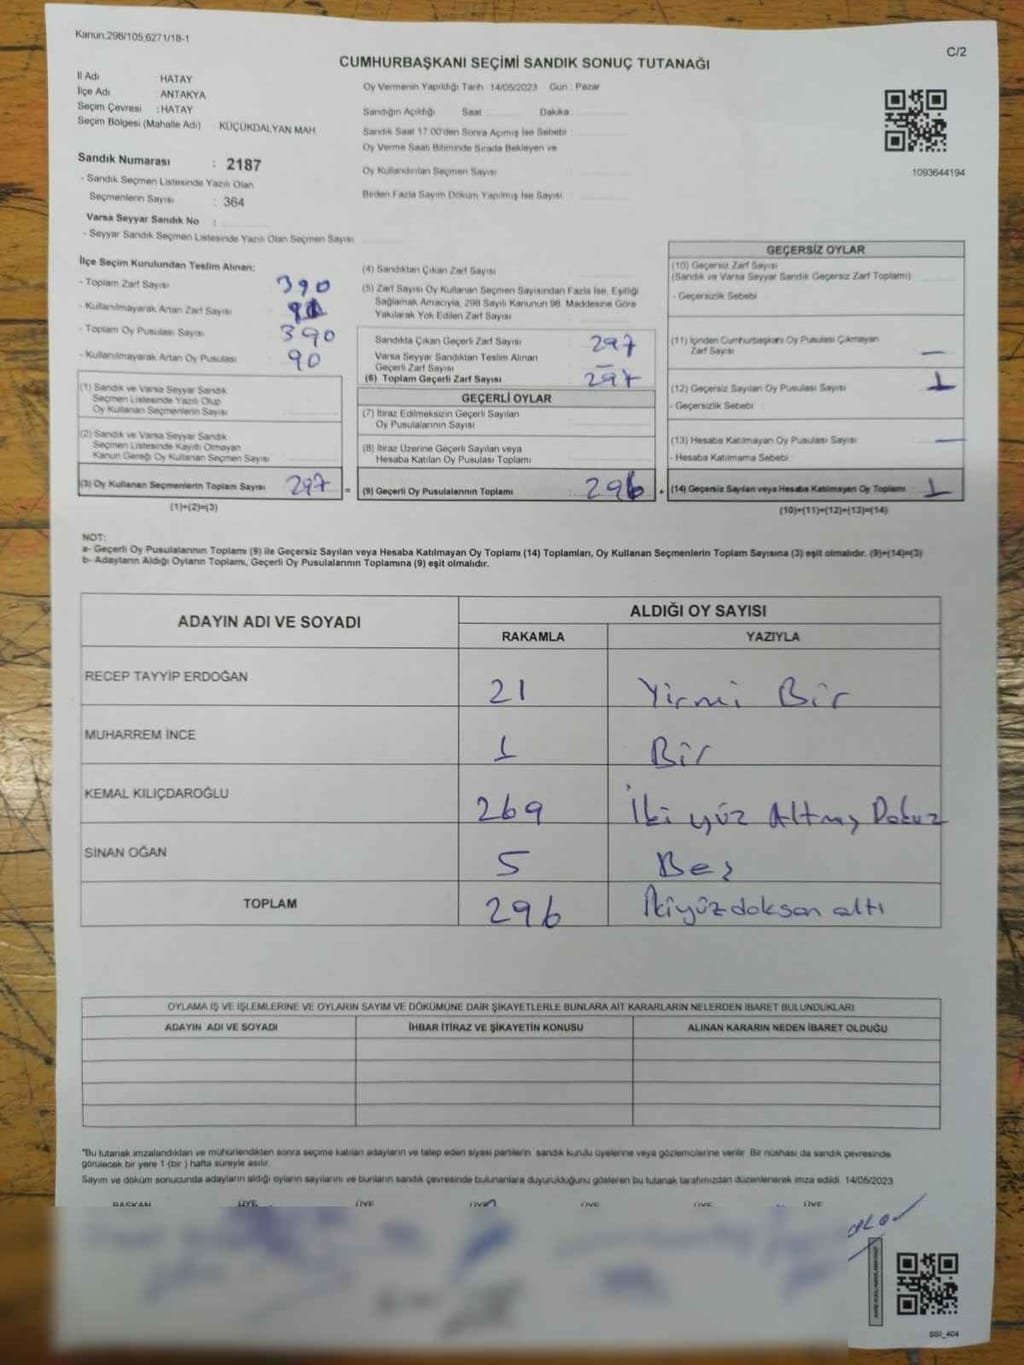 Kanun.298/105,6271/18-1
C/2
CUMHURBAŞKANI SEÇİMİ SANDIK SONUÇ TUTANAĞI
İl Adı : HATAY
İlçe Adı : ANTAKYA
Seçim Çevresi : HATAY
Seçim Bölgesi (Mahalle Adı) : KÜÇÜKDALYAN MAH.
Sandık Numarası : 2187
- Sandık Seçmen Listesinde Yazılı Olan
Seçmenlerin Sayısı : 364
Varsa Seyyar Sandık No :
- Seyyar Sandık Seçmen Listesinde Yazılı Olan Seçmen Sayısı
Oy Vermenin Yapıldığı Tarih 14/05/2023 Gün : Pazar
Sandığın Açıldığı Saat Dakika
Sandık Saat 17:00'den Sonra Açılmış İse Sebebi
Oy Verme Saati Bitiminde Sırada Bekleyen ve
Oy Kullandırılan Seçmen Sayısı
Birden Fazla Sayım Döküm Yapılmış İse Sayısı
1093644194
İlçe Seçim Kurulundan Teslim Alınan:
- Toplam Zarf Sayısı 390
- Kullanılmayarak Artan Zarf Sayısı
- Toplam Oy Pusulası Sayısı 390
- Kullanılmayarak Artan Oy Pusulası 90
(1) Sandık ve Varsa Seyyar Sandık
Seçmen Listesinde Yazılı Olup
Oy Kullanan Seçmenlerin Sayısı
(2) Sandık ve Varsa Seyyar Sandık
Seçmen Listesinde Kayıtlı Olmayan
Kanun Gereği Oy Kullanan Seçmen Sayısı
(3) Oy Kullanan Seçmenlerin Toplam Sayısı 297 =
(1)+(2)=(3)
(4) Sandıktan Çıkan Zarf Sayısı
(5) Zarf Sayısı Oy Kullanan Seçmen Sayısından Fazla İse, Eşitliği
Sağlamak Amacıyla, 298 Sayılı Kanunun 98. Maddesine Göre
Yakılarak Yok Edilen Zarf Sayısı
Sandıkta Çıkan Geçerli Zarf Sayısı 297
Varsa Seyyar Sandıktan Teslim Alınan
Geçerli Zarf Sayısı –
(6) Toplam Geçerli Zarf Sayısı 297
GEÇERLİ OYLAR
(7) İtiraz Edilmeksizin Geçerli Sayılan
Oy Pusulalarının Sayısı
(8) İtiraz Üzerine Geçerli Sayılan veya
Hesaba Katılan Oy Pusulası Toplamı
(9) Geçerli Oy Pusulalarının Toplamı 296 +
GEÇERSİZ OYLAR
(10) Geçersiz Zarf Sayısı
(Sandık ve Varsa Seyyar Sandık Geçersiz Zarf Toplamı)
- Geçersizlik Sebebi
(11) İçinden Cumhurbaşkanı Oy Pusulası Çıkmayan
Zarf Sayısı —
(12) Geçersiz Sayılan Oy Pusulası Sayısı 1
- Geçersizlik Sebebi
(13) Hesaba Katılmayan Oy Pusulası Sayısı —
- Hesaba Katılmama Sebebi
(14) Geçersiz Sayılan veya Hesaba Katılmayan Oy Toplamı 1
(10)+(11)+(12)+(13)=(14)
NOT:
a- Geçerli Oy Pusulalarının Toplamı (9) ile Geçersiz Sayılan veya Hesaba Katılmayan Oy Toplamı (14) Toplamları, Oy Kullanan Seçmenlerin Toplam Sayısına (3) eşit olmalıdır. (9)+(14)=(3)
b- Adayların Aldığı Oyların Toplamı, Geçerli Oy Pusulalarının Toplamına (9) eşit olmalıdır.
ADAYIN ADI VE SOYADI
ALDIĞI OY SAYISI
RAKAMLA YAZIYLA
RECEP TAYYİP ERDOĞAN 21 Yirmi Bir
MUHARREM İNCE 1 Bir
KEMAL KILIÇDAROĞLU 269 İki yüz Altmış Dokuz
SİNAN OĞAN 5 Beş
TOPLAM 296 İkiyüzdoksan altı
OYLAMA İŞ VE İŞLEMLERİNE VE OYLARIN SAYIM VE DÖKÜMÜNE DAİR ŞİKAYETLERLE BUNLARA AİT KARARLARIN NELERDEN İBARET BULUNDUKLARI
ADAYIN ADI VE SOYADI İHBAR İTİRAZ VE ŞİKAYETİN KONUSU ALINAN KARARIN NEDEN İBARET OLDUĞU
*Bu tutanak imzalandıktan ve mühürlendikten sonra seçime katılan adayların ve talep eden siyasi partilerin sandık kurulu üyelerine veya gözlemcilerine verilir. Bir nüshası da sandık çevresinde
görülecek bir yere 1 (bir) hafta süreyle asılır.
Sayım ve döküm sonucunda adayların aldığı oyların sayılarını ve bunların sandık çevresinde bulunanlara duyurulduğunu gösteren bu tutanak tarafımızdan düzenlenerek imza edildi. 14/05/2023
BAŞKAN ÜYE ÜYE ÜYE ÜYE ÜYE ÜYE
SSI_404